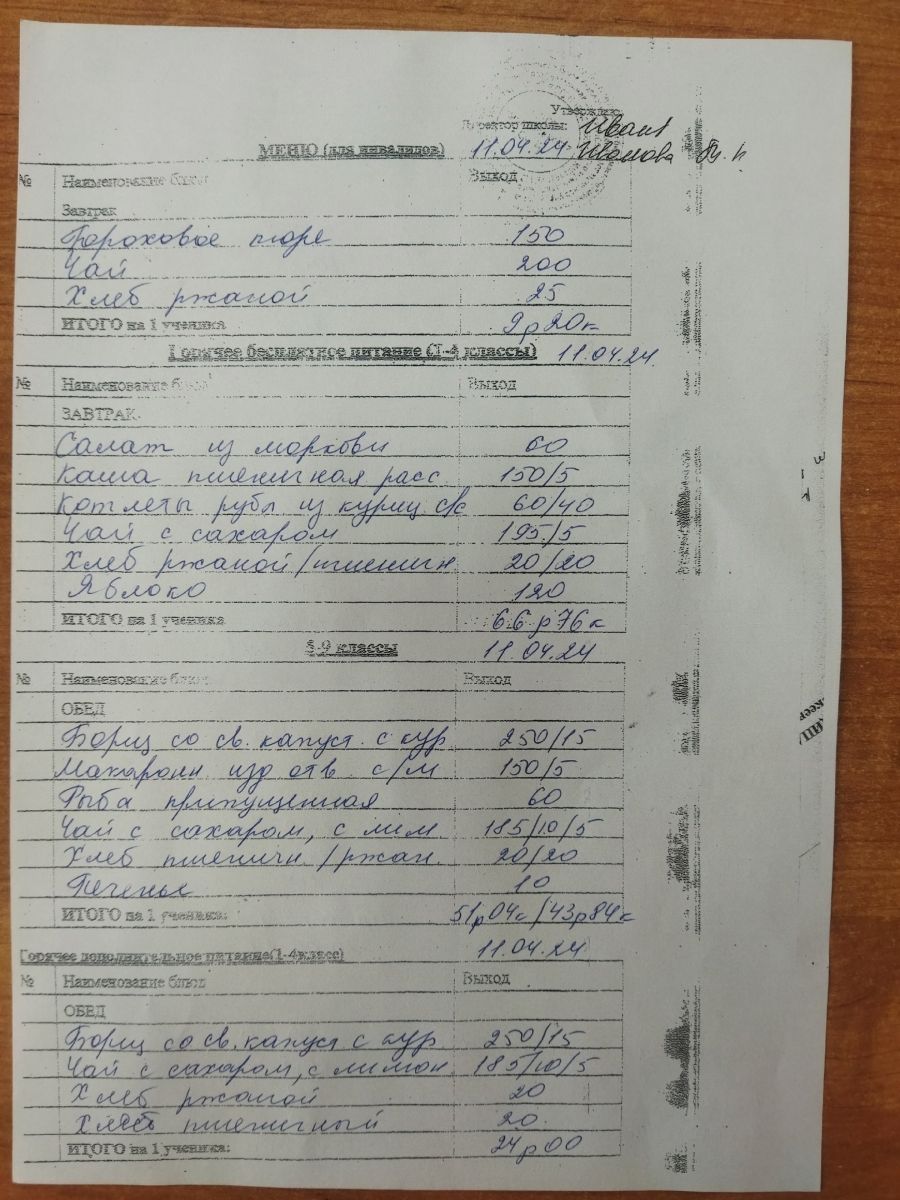 Утверждаю:
Директор школы: Иван
МЕНЮ (для инвалидов) 11.04.24 Иванова
№ Наименование блюд Выход
Завтрак
Гороховое пюре 150
Чай 200
Хлеб ржаной 25
ИТОГО на 1 ученика 9р20к
Горячее бесплатное питание (1-4 классы) 11.04.24.
№ Наименование блюд Выход
ЗАВТРАК
Салат из моркови 60
Каша пшеничная расс. 150/5
Котлеты рубл. из куриц. с/с 60/40
Чай с сахаром 195/5
Хлеб ржаной/пшеничн 20/20
Яблоко 120
ИТОГО на 1 ученика 66р76к
5-9 классы 11.04.24
№ Наименование блюд Выход
ОБЕД
Борщ со св. капуст. с кур 250/15
Макаронн. изд отв. с/м 150/5
Рыба припущенная 60
Чай с сахаром, с лим. 185/10/5
Хлеб пшеничн./ржан. 20/20
Печенье 10
ИТОГО на 1 ученика: 51р04к/43р84к
Горячее дополнительное питание(1-4класс) 11.04.24
№ Наименование блюд Выход
ОБЕД
Борщ со св. капуст с кур 250/15
Чай с сахаром, с лимон 185/10/5
Хлеб ржаной 20
Хлеб пшеничный 20.
ИТОГО на 1 ученика: 24р00